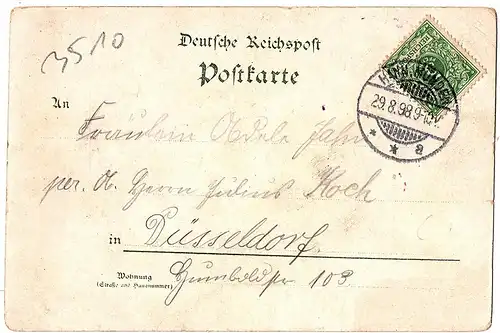 3510
Deutsche Reichspost
Postkarte
HANN. MÜNDEN
29.8.98.9-10V.
* * a
An
Fräulein Adele Jahn
per. A. Herrn Julius Koch
in Düsseldorf.
Wohnung
(Straße und Hausnummer)
Humboldtstr 103